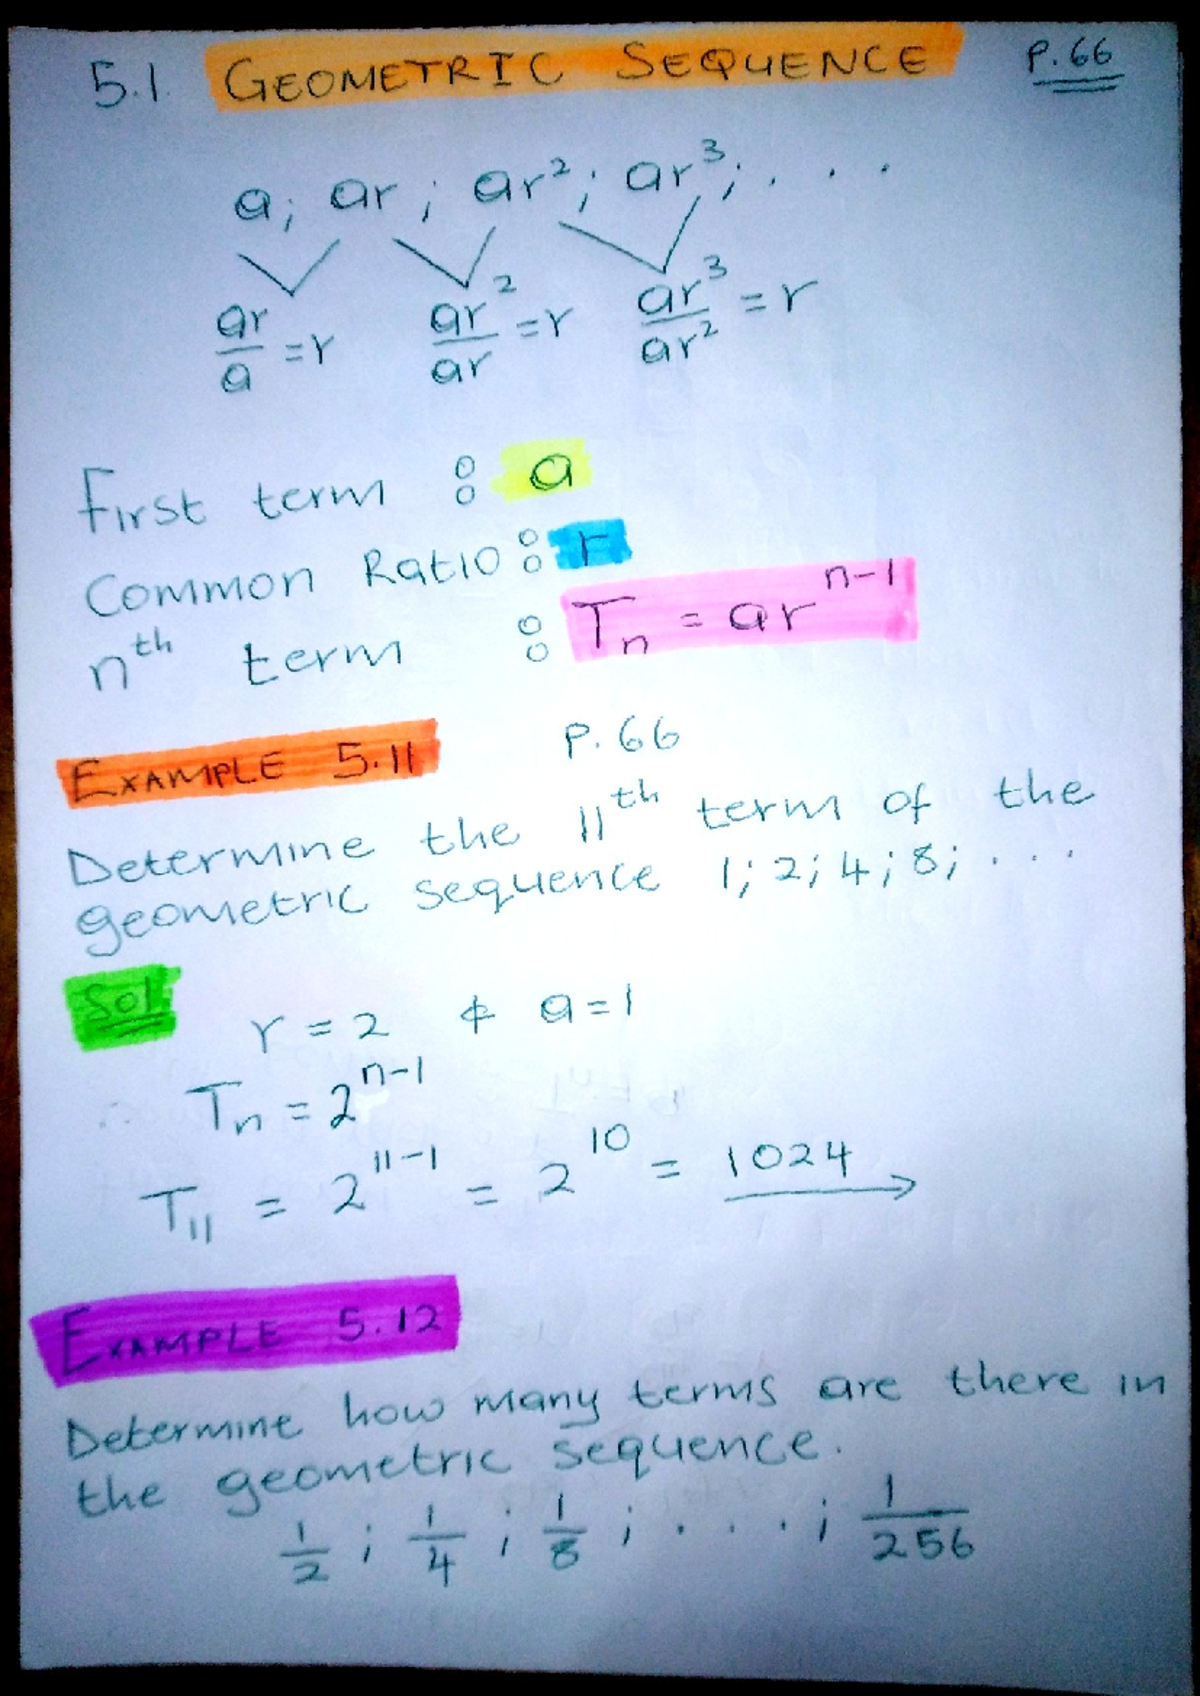 5.1. GEOMETRIC SEQUENCE P.66
a; ar; ar²; ar³; . . .
ar/a = r ar²/ar = r ar³/ar² = r
First term : a
Common Ratio : r
nth term : Tn = ar^(n-1)
EXAMPLE 5.11 P.66
Determine the 11th term of the
geometric sequence 1; 2; 4; 8; . . .
Sol
r = 2 & a = 1
∴ Tn = 2^(n-1)
T11 = 2^(11-1) = 2^10 = 1024
EXAMPLE 5.12
Determine how many terms are there in
the geometric sequence.
1/2 ; 1/4 ; 1/8 ; . . . . ; 1/256